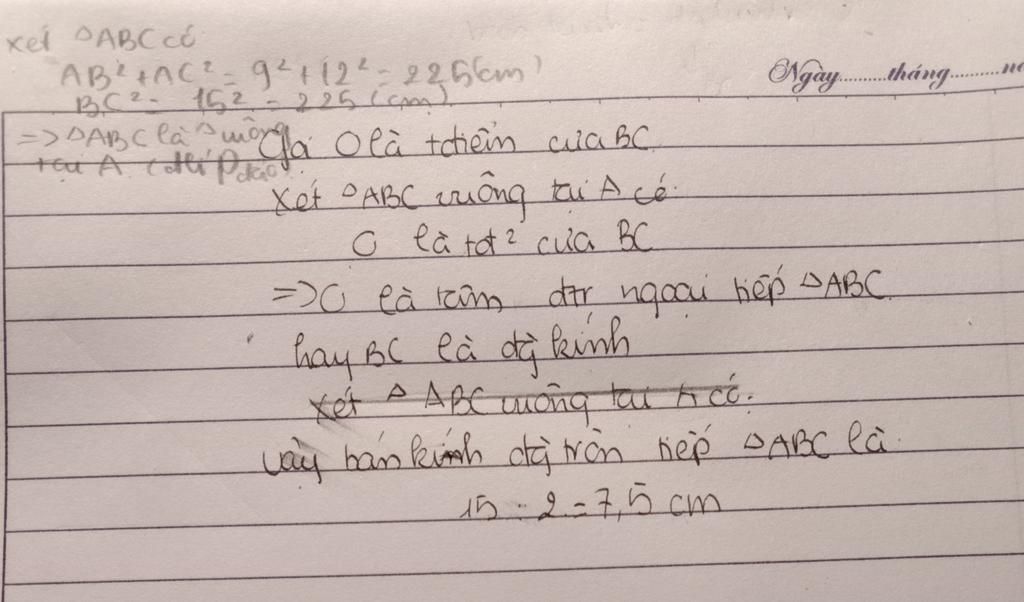 xét △ABC có
AB² + AC² = 9² + 12² = 225(cm)
Ngày..........tháng..........
BC² = 15² = 225 (cm)
=> △ABC là △ vuông
tại A (đlí P đảo)
Gọi O là tđiểm của BC
Xét △ABC vuông tại A có
O là tđ² của BC
=> O là tâm đtr ngoại tiếp △ABC
hay BC là đg kính
Xét △ ABC vuông tại A có.
Vậy bán kính đg tròn tiếp △ABC là
15 : 2 = 7,5 cm